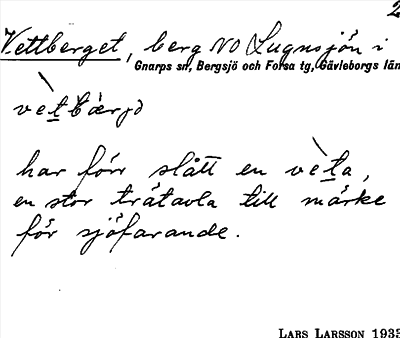 2
Vettberget, berg NO Lugnsjön i
Gnarps sn, Bergsjö och Forsa tg, Gävleborgs län
vètbærjə
har förr stått en vèta,
en stor trätavla till märke
för sjöfarande.
LARS LARSSON 1933